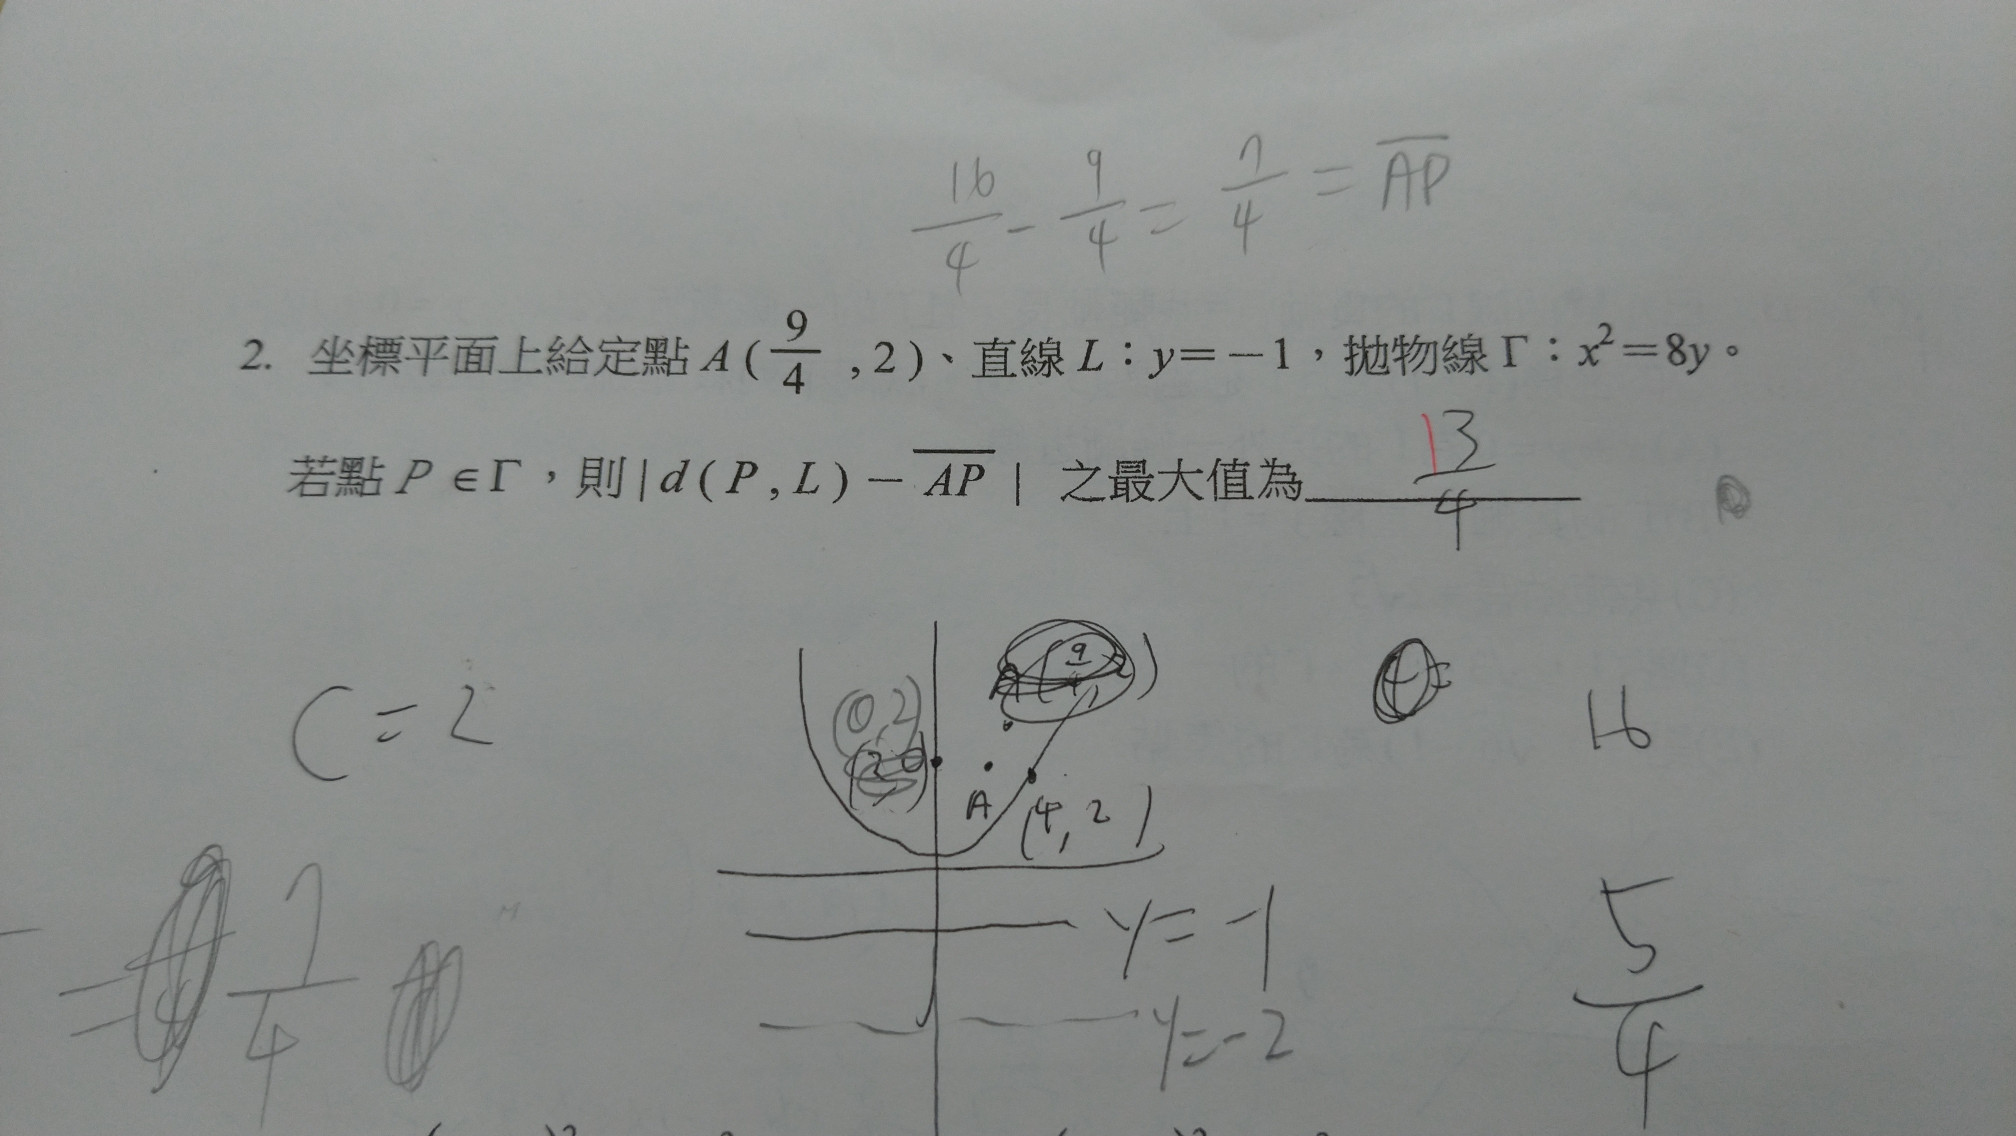 16/4 - 9/4 = 7/4 = AP
2. 坐標平面上給定點 A(9/4 , 2)、直線 L:y=-1,拋物線 Γ:x²=8y。
若點 P ∈ Γ,則 | d(P, L) - AP | 之最大值為 13/4
C = 2
(0,2)
A
(4, 2)
16
y = -1
y = -2
= 7/4
5/4